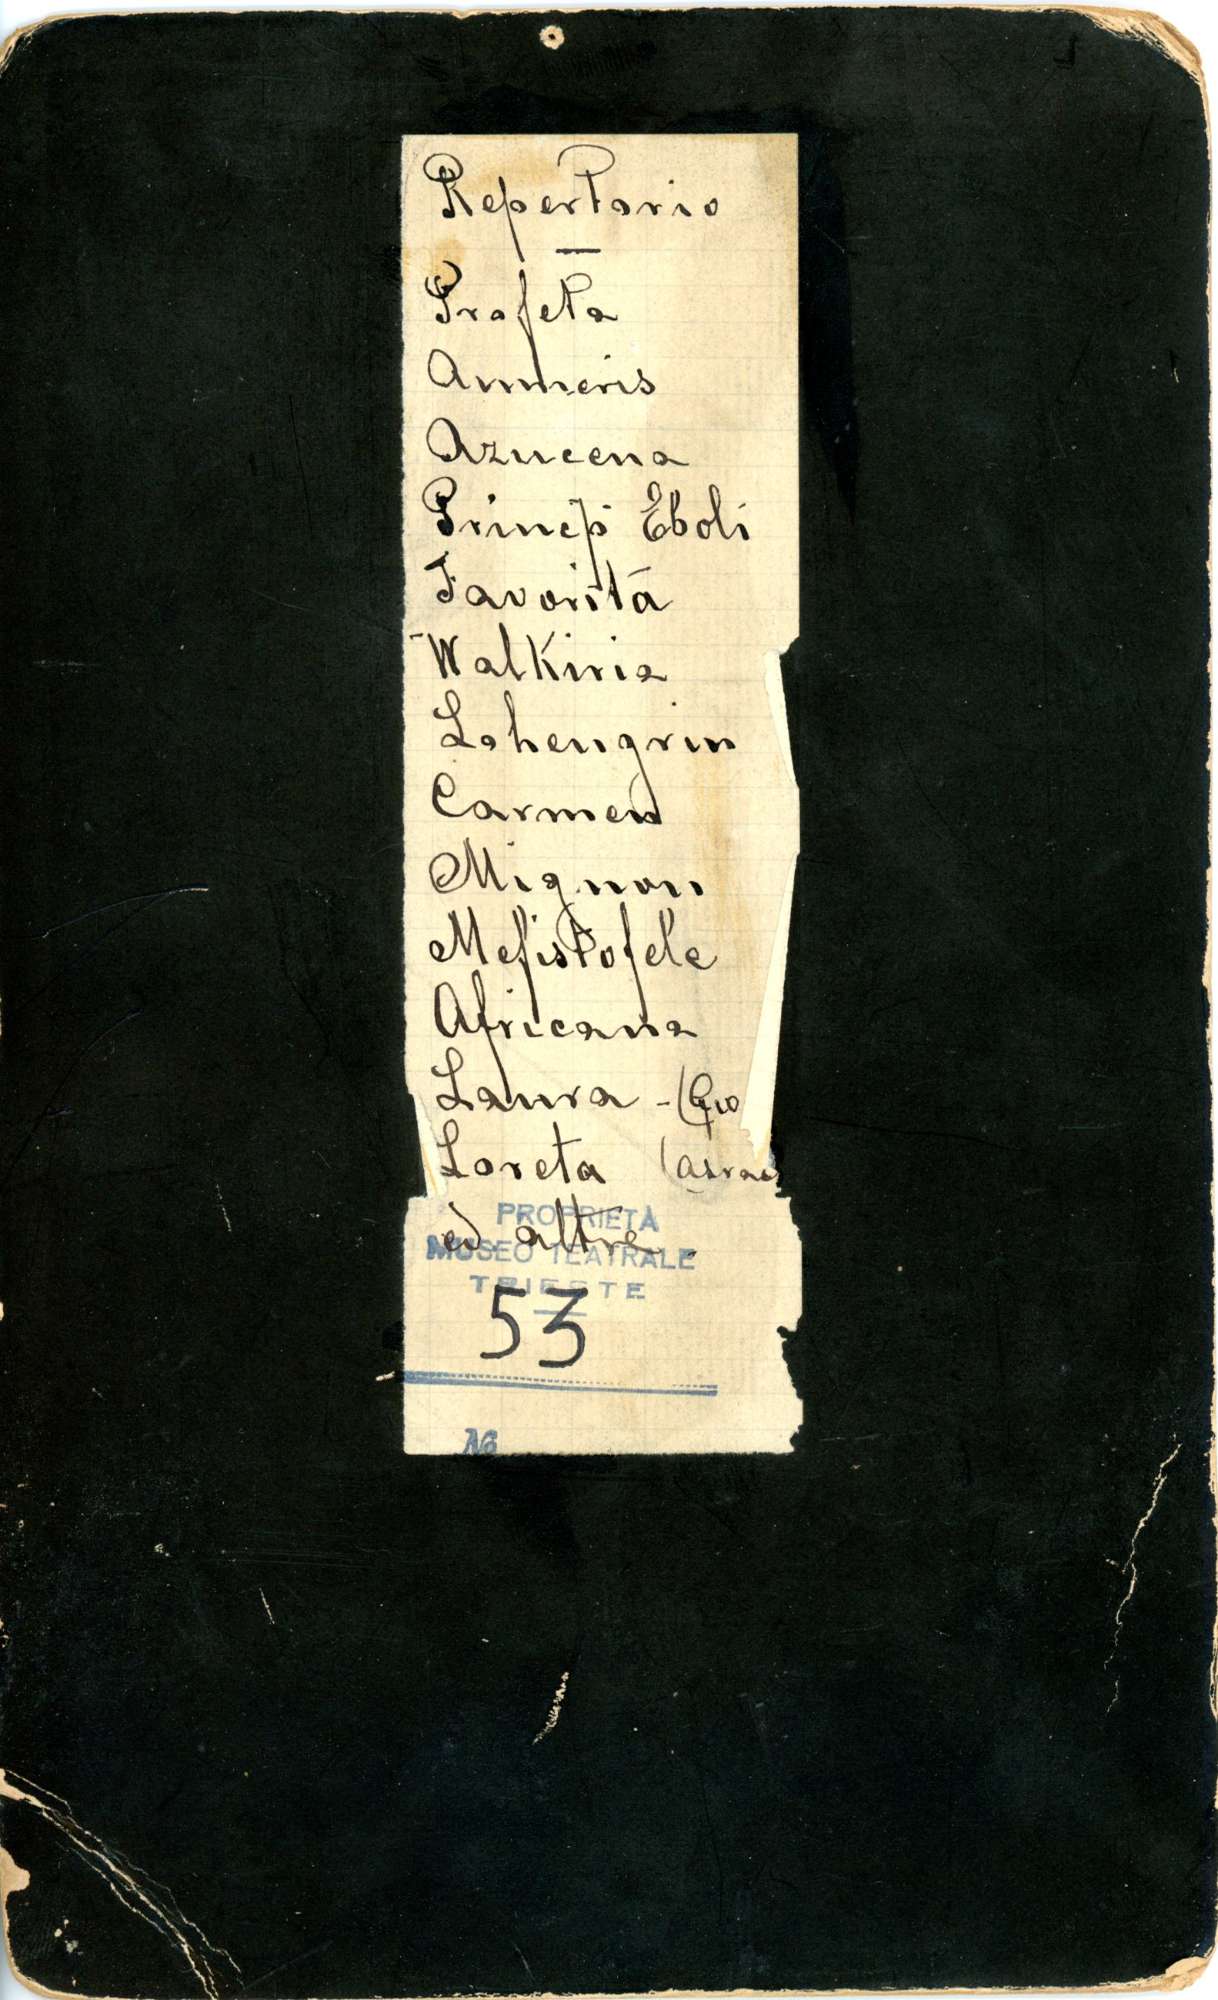 Repertorio
Profeta
Amneris
Azucena
Princip Eboli
Favorita
Walkiria
Lohengrin
Carmen
Mignon
Mefistofele
Africana
Laura - (Gio
Loreta (Asrae
ed altre
PROPRIETÀ
MUSEO TEATRALE
TRIESTE
53
No